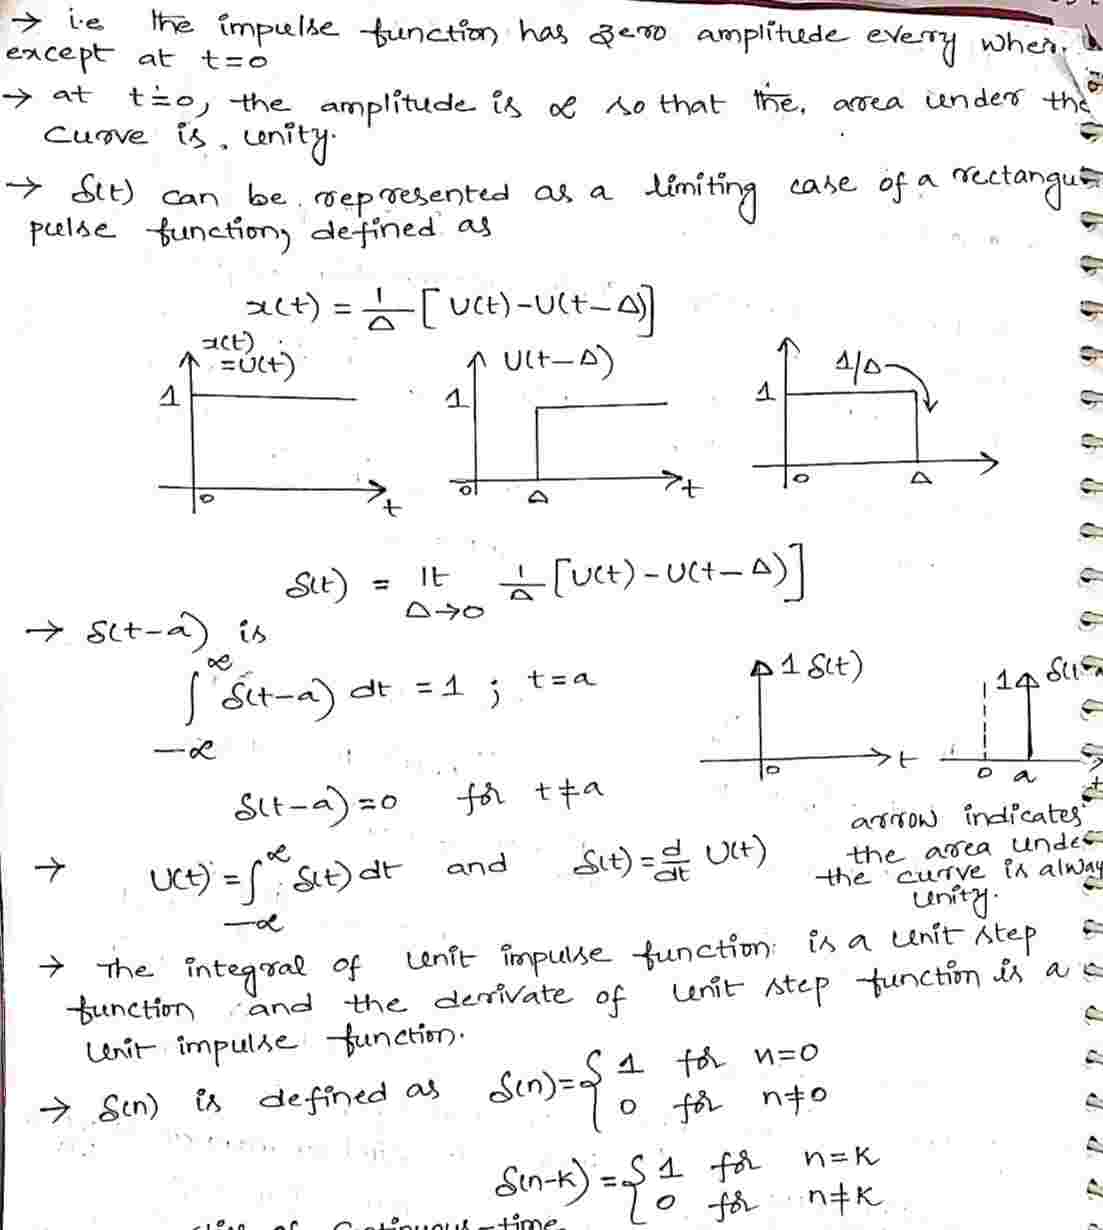 → i.e the impulse function has zero amplitude every wher
except at t=0
→ at t=0, the amplitude is ∝ so that the, area under the
curve is. unity.
→ δ(t) can be represented as a limiting case of a rectangu
pulse function, defined as
x(t) = 1/Δ [U(t)-U(t-Δ)]
x(t)
=U(t)
1
0
t
U(t-Δ)
1
0
Δ
t
1/Δ
1
0
Δ
δ(t) = lt Δ→0 1/Δ [U(t)-U(t-Δ)]
→ δ(t-a) is
∫_{-∝}^{∝} δ(t-a) dt = 1 ; t=a
1 δ(t)
0
t
1
0
a
t
δ(t-a)=0 for t≠a
arrow indicates
the area unde
the curve is alway
unity.
→ U(t) = ∫_{-∝}^{∝} δ(t) dt and δ(t) = d/dt U(t)
→ The integral of unit impulse function is a unit step
function and the derivate of unit step function is a
unit impulse function.
→ δ(n) is defined as δ(n) = { 1 for n=0
0 for n≠0
δ(n-k) = { 1 for n=k
0 for n≠k
of Continuous-time